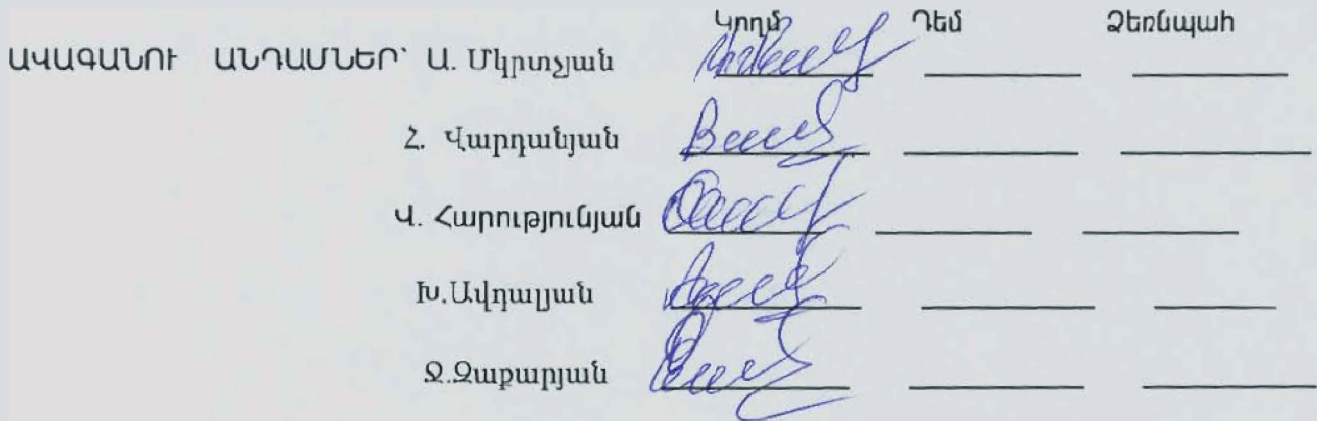 Կողմ Դեմ Ձեռնպահ
ԱՎԱԳԱՆՈՒ ԱՆԴԱՄՆԵՐ՝ Ա. Մկրտչյան
Հ. Վարդանյան
Վ. Հարությունյան
Խ.Ավդալյան
Զ.Զաքարյան